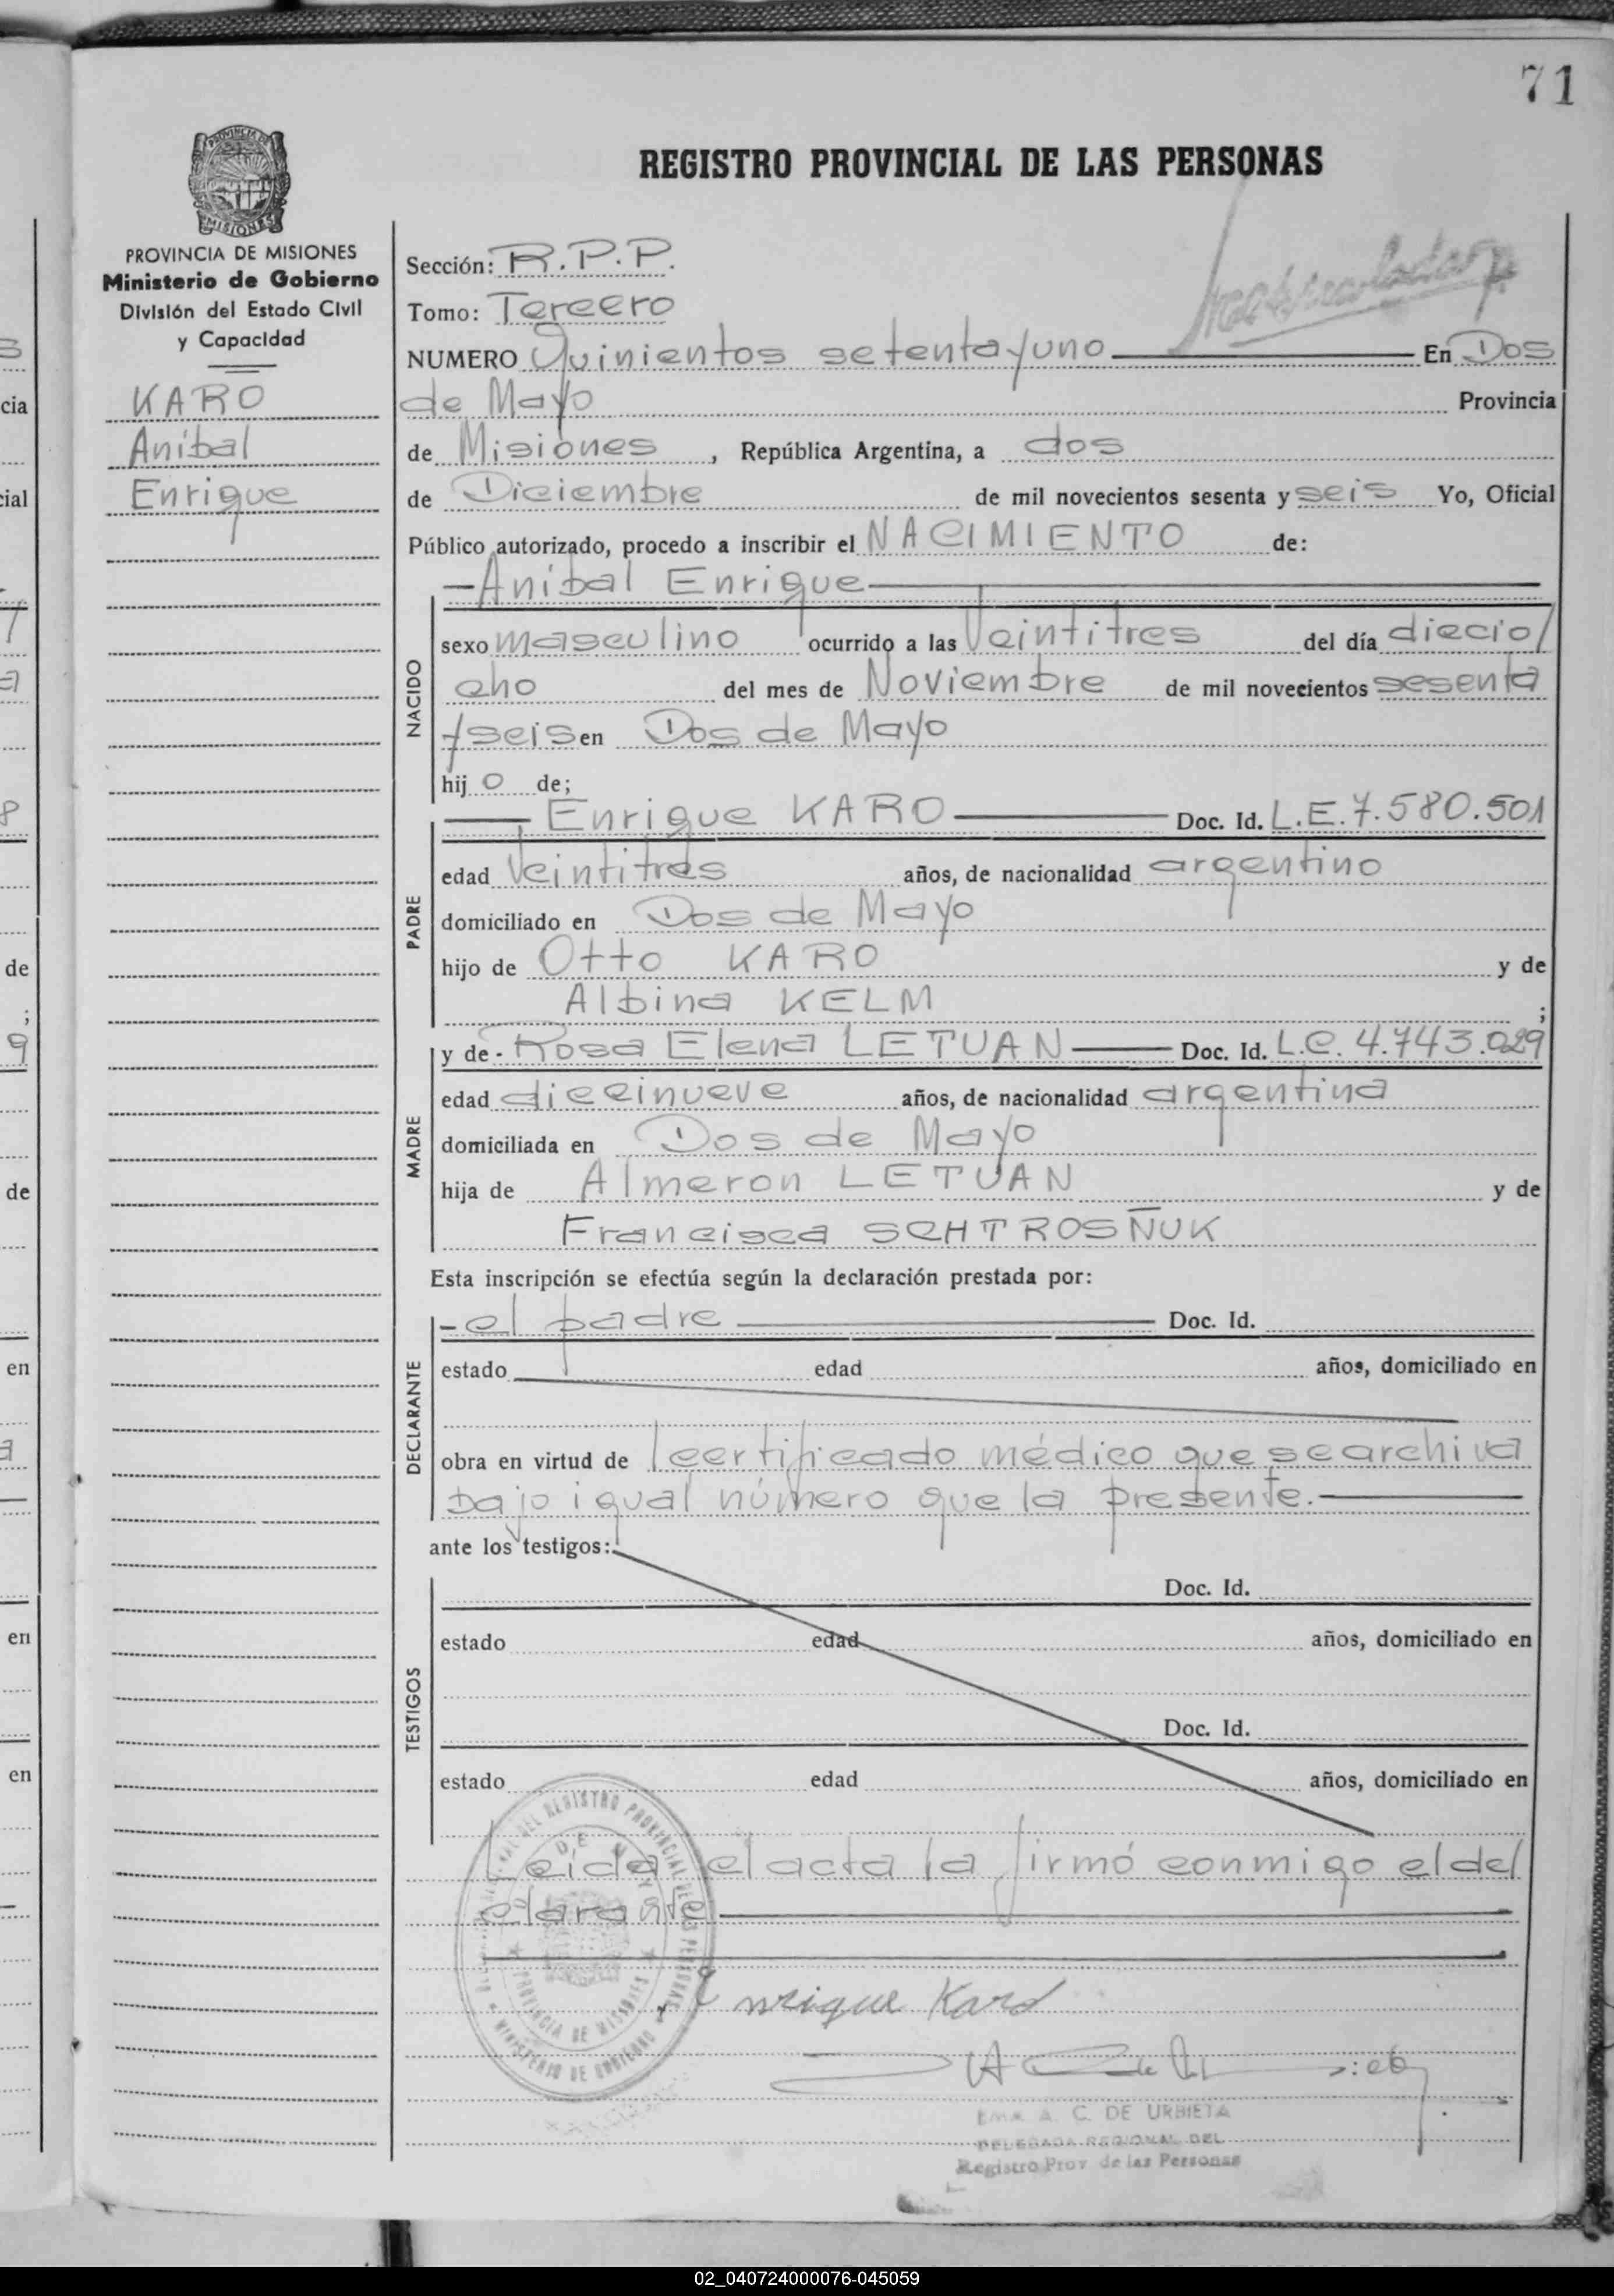 71
REGISTRO PROVINCIAL DE LAS PERSONAS
PROVINCIA DE MISIONES
Ministerio de Gobierno
División del Estado Civil
y Capacidad
KARO
Anibal
Enrique
Sección: R.P.P.
Tomo: Tercero
NUMERO Quinientos setenta y uno En Dos
de Mayo Provincia
de Misiones, República Argentina, a dos
de Diciembre de mil novecientos sesenta y seis Yo, Oficial
Público autorizado, procedo a inscribir el NACIMIENTO de:
—Anibal Enrique—
NACIDO
sexo masculino ocurrido a las Veintitres del día diecio/
cho del mes de Noviembre de mil novecientos sesenta
y seis en Dos de Mayo
hijo de;
PADRE
— Enrique KARO — Doc. Id. L.E. 7.580.501
edad Veintitrés años, de nacionalidad argentino
domiciliado en Dos de Mayo
hijo de Otto KARO y de
Albina KELM ;
MADRE
y de - Rosa Elena LETUAN — Doc. Id. L.C. 4.743.029
edad diecinueve años, de nacionalidad argentina
domiciliada en Dos de Mayo
hija de Almeron LETUAN y de
Francisca SCHTROSÑUK
Esta inscripción se efectúa según la declaración prestada por:
DECLARANTE
- el padre — Doc. Id.
estado edad años, domiciliado en
obra en virtud de 1 certificado médico que se archiva
bajo igual número que la presente. —
ante los testigos:
TESTIGOS
Doc. Id.
estado edad años, domiciliado en
Doc. Id.
estado edad años, domiciliado en
Leída el acta la firmó conmigo el de/
clarante —
Enrique Karo
A. C. DE URBIETA
DELEGADA REGIONAL DEL
Registro Prov de las Personas
02_040724000076-045059